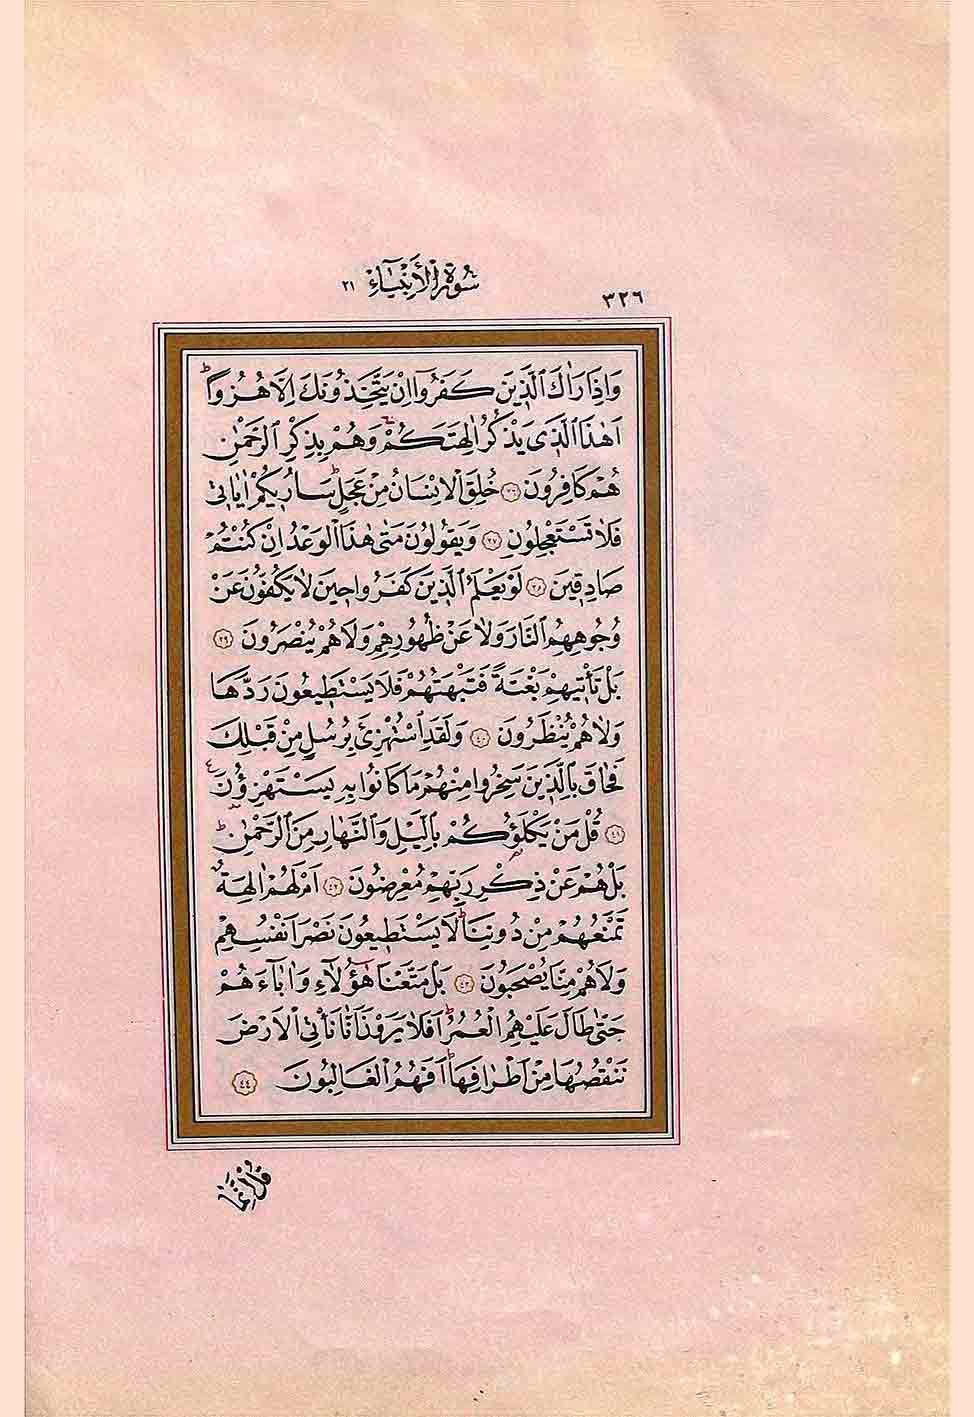 ٣٢٦
سُورَةُ الْأَنْبِيَاءِ ٢١
وَاِذَا رَاٰكَ الَّذٖينَ كَفَرُٓوا اِنْ يَتَّخِذُونَكَ اِلَّا هُزُوًاؕ
اَهٰذَا الَّذٖى يَذْكُرُ اٰلِهَتَكُمْۚ وَهُمْ بِذِكْرِ الرَّحْمٰنِ
هُمْ كَافِرُونَ ﴿٣٦﴾ خُلِقَ الْاِنْسَانُ مِنْ عَجَلٍؕ سَاُرٖيكُمْ اٰيَاتٖى
فَلَا تَسْتَعْجِلُونِ ﴿٣٧﴾ وَيَقُولُونَ مَتٰى هٰذَا الْوَعْدُ اِنْ كُنْتُمْ
صَادِقٖينَ ﴿٣٨﴾ لَوْ يَعْلَمُ الَّذٖينَ كَفَرُوا حٖينَ لَا يَكُفُّونَ عَنْ
وُجُوهِهِمُ النَّارَ وَلَا عَنْ ظُهُورِهِمْ وَلَا هُمْ يُنْصَرُونَ ﴿٣٩﴾
بَلْ تَأْتٖيهِمْ بَغْتَةً فَتَبْهَتُهُمْ فَلَا يَسْتَطٖيعُونَ رَدَّهَا
وَلَا هُمْ يُنْظَرُونَ ﴿٤٠﴾ وَلَقَدِ اسْتُهْزِئَ بِرُسُلٍ مِنْ قَبْلِكَ
فَحَاقَ بِالَّذٖينَ سَخِرُوا مِنْهُمْ مَا كَانُوا بِهٖ يَسْتَهْزِؤُ۫نَࣖ
﴿٤١﴾ قُلْ مَنْ يَكْلَؤُ۬كُمْ بِالَّيْلِ وَالنَّهَارِ مِنَ الرَّحْمٰنِؕ
بَلْ هُمْ عَنْ ذِكْرِ رَبِّهِمْ مُعْرِضُونَ ﴿٤٢﴾ اَمْ لَهُمْ اٰلِهَةٌ
تَمْنَعُهُمْ مِنْ دُونِنَاؕ لَا يَسْتَطٖيعُونَ نَصْرَ اَنْفُسِهِمْ
وَلَا هُمْ مِنَّا يُصْحَبُونَ ﴿٤٣﴾ بَلْ مَتَّعْنَا هٰٓؤُ۬لَٓاءِ وَاٰبَٓاءَهُمْ
حَتّٰى طَالَ عَلَيْهِمُ الْعُمُرُؕ اَفَلَا يَرَوْنَ اَنَّا نَأْتِى الْاَرْضَ
نَنْقُصُهَا مِنْ اَطْرَافِهَاؕ اَفَهُمُ الْغَالِبُونَ ﴿٤٤﴾
قُلْ اِنَّمَٓا